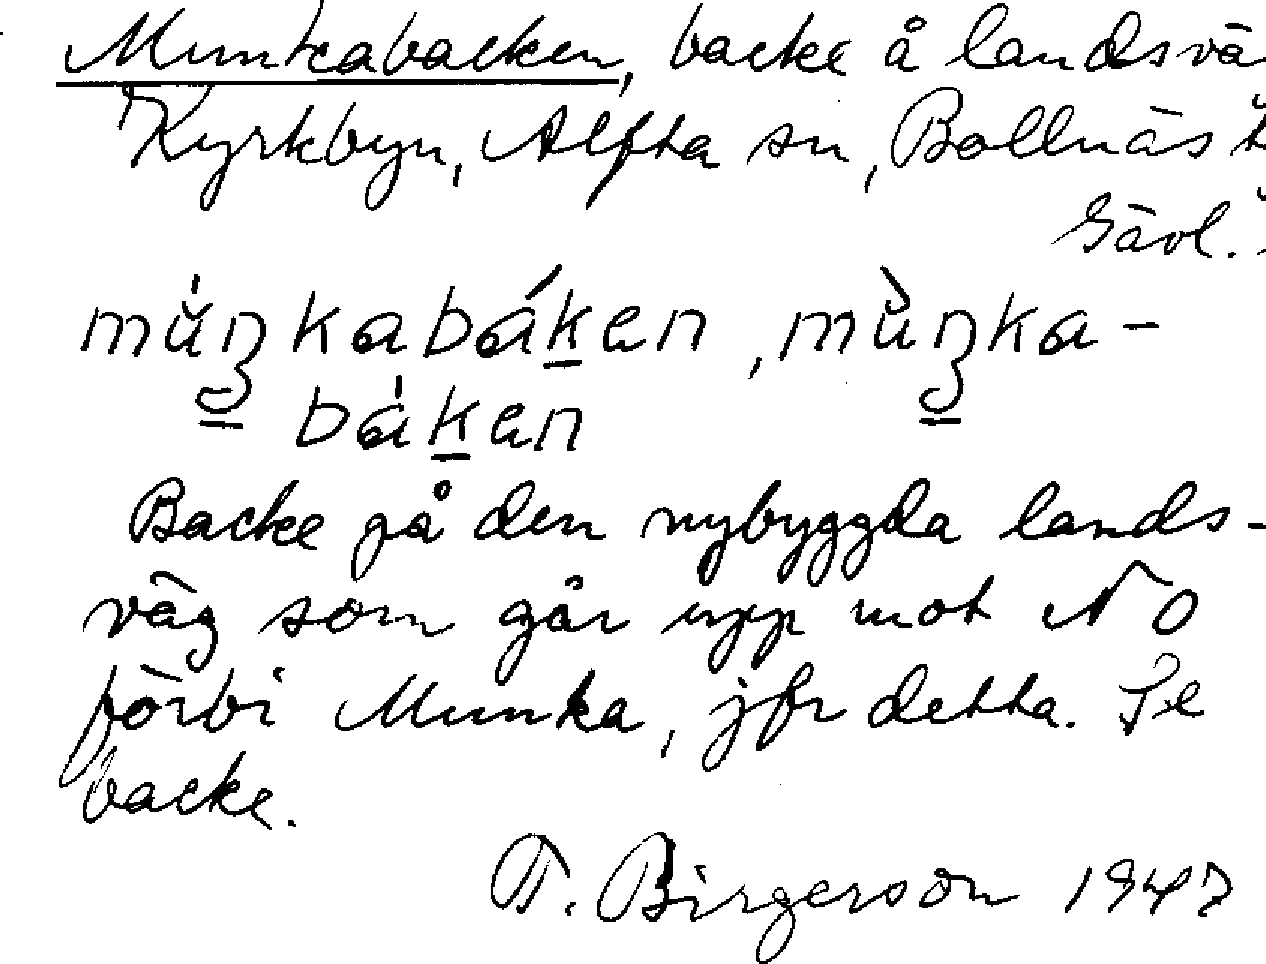 Munkabacken, backe å landsvä
Kyrkbyn, Alfta sn, Bollnäs
Gävl.
mùŋkabáken, mùŋka-
bàken
Backe på den nybyggda lands-
väg som går upp mot NO
förbi Munka, jfr detta. Se
backe.
T. Birgerson 1947